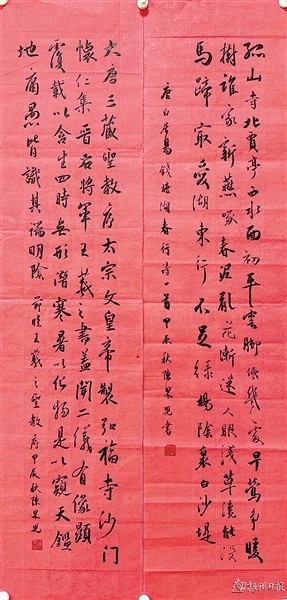 孤山寺北賈亭西水面初平雲脚低幾處早鶯爭暖
樹誰家新燕啄春泥亂花漸迷人眼淺草纔能沒
馬蹄最愛湖東行不足綠楊陰裏白沙堤
唐白居易錢塘湖春行詩一首甲辰秋陳果書
大唐三藏聖教序太宗文皇帝製弘福寺沙門
懷仁集晉右將軍王羲之書蓋聞二儀有像顯
覆載以含生四時無形潛寒暑以化物是以窺天鑑
地庸愚皆識其端明陰
節臨王羲之聖教序甲辰秋陳果
梅州日报